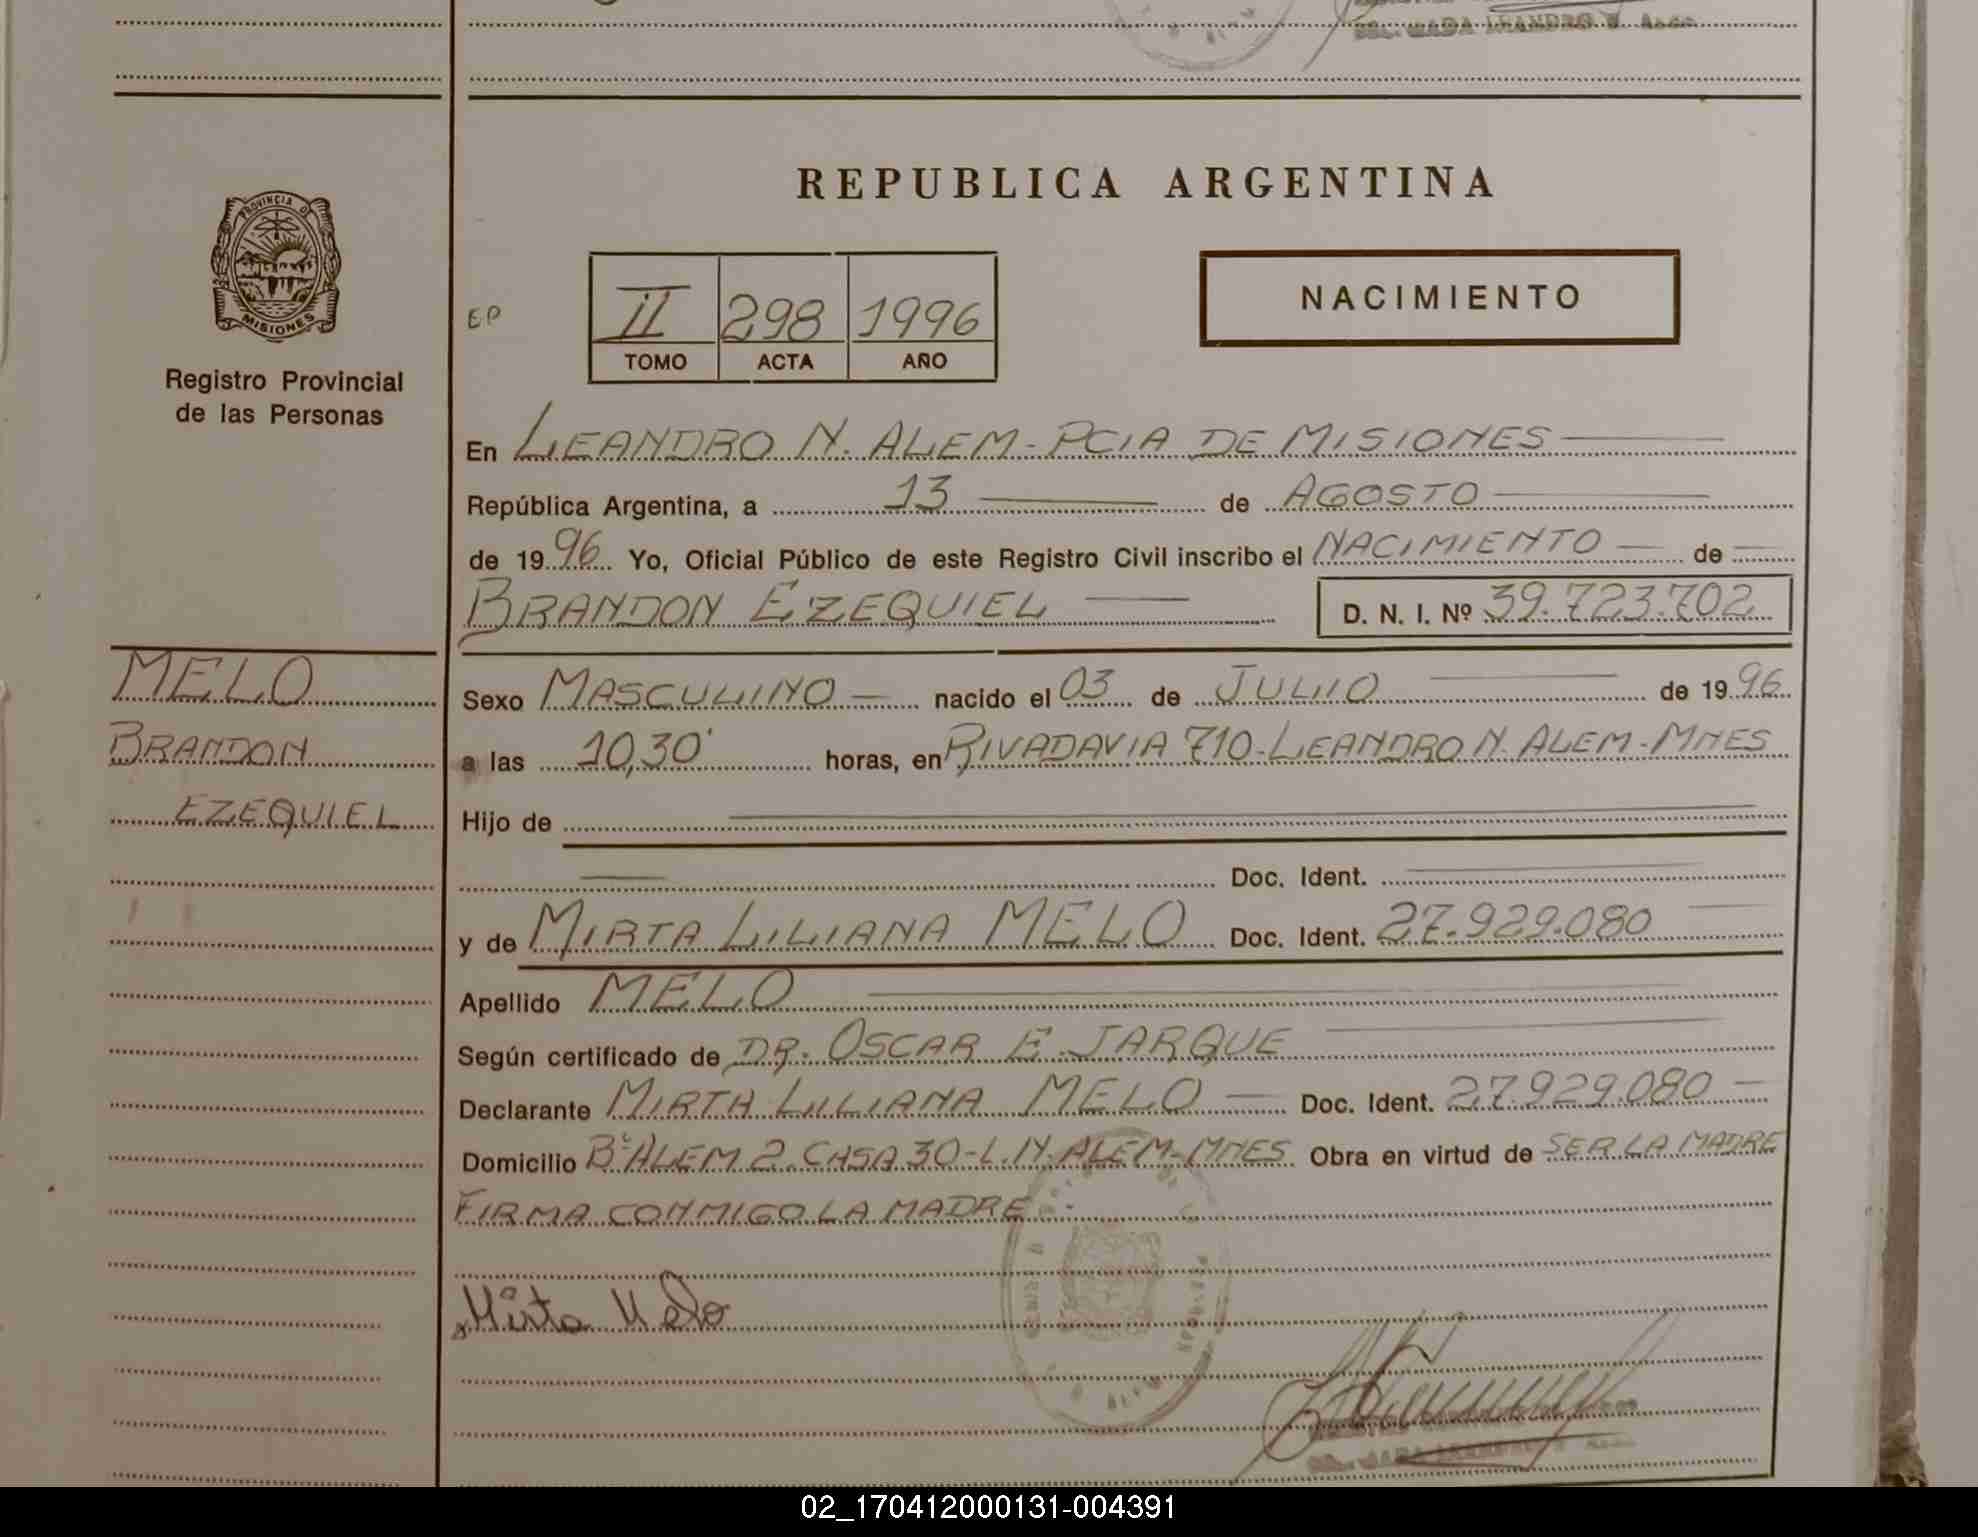 REPUBLICA ARGENTINA
PROVINCIA D
MISIONES
Registro Provincial
de las Personas
EP
II 298 1996
TOMO ACTA AÑO
NACIMIENTO
En LEANDRO N. ALEM - PCIA DE MISIONES
República Argentina, a 13 de AGOSTO
de 1996 Yo, Oficial Público de este Registro Civil inscribo el NACIMIENTO de
BRANDON EZEQUIEL D. N. I. Nº 39.723.702
MELO
BRANDON
EZEQUIEL
Sexo MASCULINO nacido el 03 de JULIO de 1996
a las 10,30' horas, en RIVADAVIA 710-LEANDRO N. ALEM-MNES
Hijo de
Doc. Ident.
y de MIRTA LILIANA MELO Doc. Ident. 27.929.080
Apellido MELO
Según certificado de DR. OSCAR E. JARQUE
Declarante MIRTA LILIANA MELO Doc. Ident. 27.929.080
Domicilio Bº ALEM 2 CASA 30-L.N. ALEM-MNES Obra en virtud de SER LA MADRE
FIRMA CONMIGO LA MADRE
Mirta Melo
02_170412000131-004391